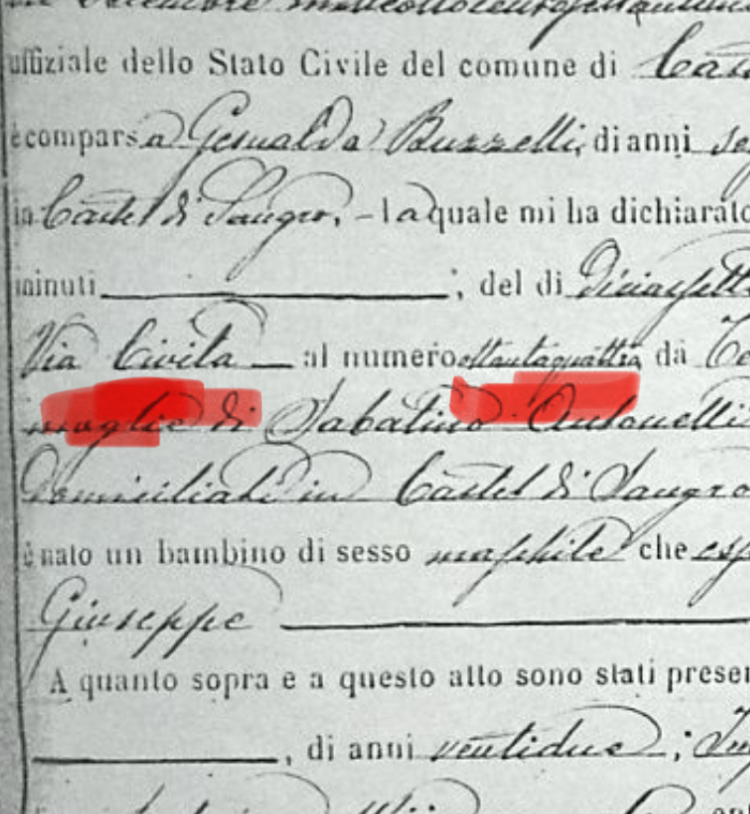 Dicembre milleottocento
uffiziale dello Stato Civile del comune di Cas
è comparsa Gesualda Buzzelli, di anni se
in Castel di Sangro, - la quale mi ha dichiarato
minuti ; del dì diciassette
Via Civita al numero ottantaquattro da
moglie di Sabatino Antonelli
domiciliati in Castel di Sangro
è nato un bambino di sesso maschile che
Giuseppe
A quanto sopra e a questo atto sono stati presen
, di anni ventidue;